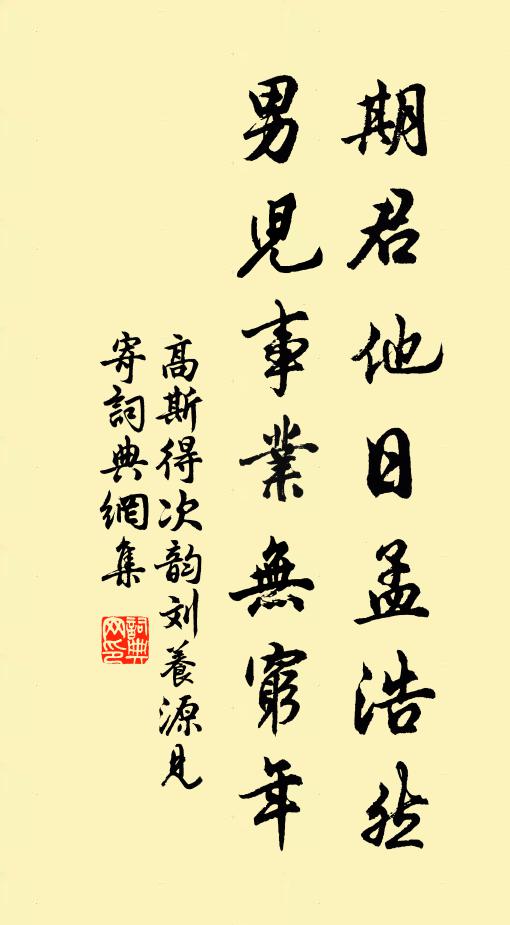 期君他日孟浩然
男児事業無窮年
高斯得次韵刘養源見
寄詞典網集
詞典
网印